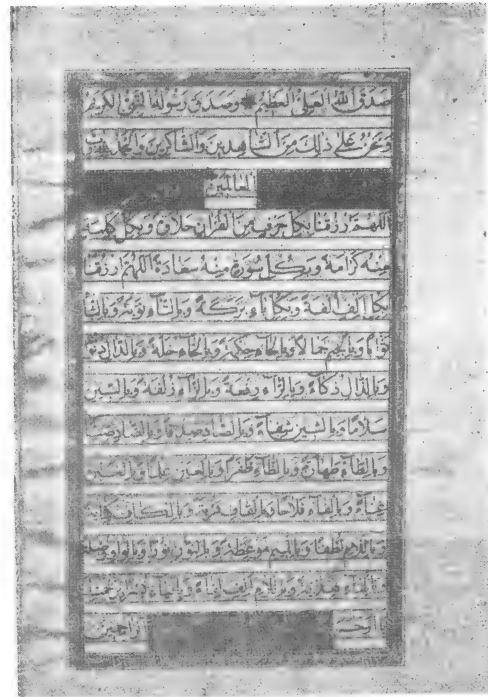 صدق الله العلي العظيم وصدق رسوله النبي الكريم
ونحن على ذلك من الشاهدين والشاكرين والحمد لله رب
العالمين
اللهم ارزقنا بكل حرف من القران حلاوة وبكل كلمة
منه كرامة وبكل سورة منه سعادة اللهم ارزقنا
بكل الف الفة وبكل باء بركة وبالتاء توبة وبالثاء
ثوابا وبالجيم جمالا وبالحاء حكمة وبالخاء خلة وبالدال دنوا
وبالذال ذكاء وبالراء رفعة وبالزاء زلفة وبالسين
سلاما وبالشين شفاء وبالصاد صدقا وبالضاد ضياء
وبالطاء طهارة وبالظاء ظفرا وبالعين علما وبالغين
غناء وبالفاء فلاحا وبالقاف قربة وبالكاف كفاية
وباللام لطفا وبالميم موعظة وبالنون نورا وبالواو وصلة
وبالهاء هداية وبلام الف وبالياء
يا ارحم الراحمين